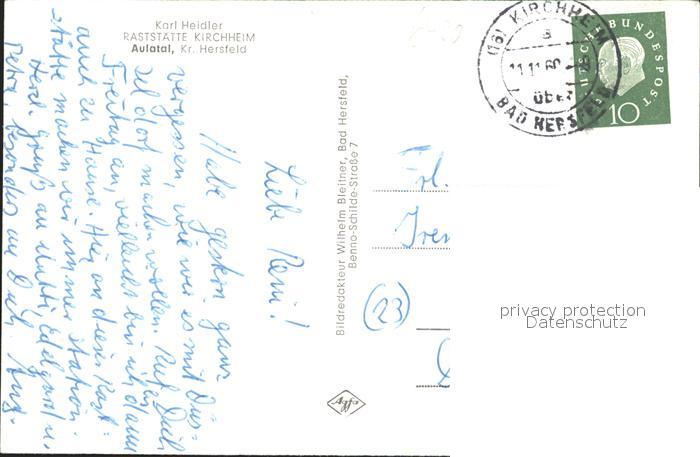 Karl Heidler
RASTSTÄTTE KIRCHHEIM
Aulatal, Kr. Hersfeld
Liebe Reni!
Habe gestern ganz
vergessen, wie wir es mit Düs-
seldorf machen wollen. Rufe Dich
Freitag an, vielleicht bin ich dann
auch zu Hause. Hier an dieser Rast-
stätte machen wir immer Station.
Herzl. Grüße an Mutti, Edelgard u.
Petra, besonders an Dich
Bildredakteur Wilhelm Bleitner, Bad Hersfeld,
Benno-Schilde-Straße 7
Agfa
(16) KIRCHHEIM
a
11.11.60
über
BAD HERSFELD
DEUTSCHE BUNDESPOST
10
Frl.
(23)
privacy protection
Datenschutz